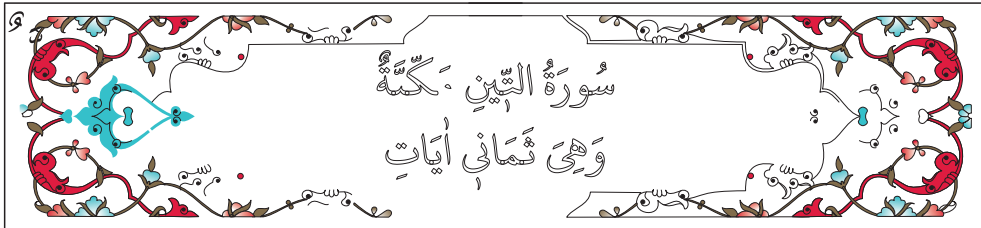 سُورَةُ التِّينِ مَكِّيَّةٌ
وَهِىَ ثَمَانِى اٰيَاتٍ